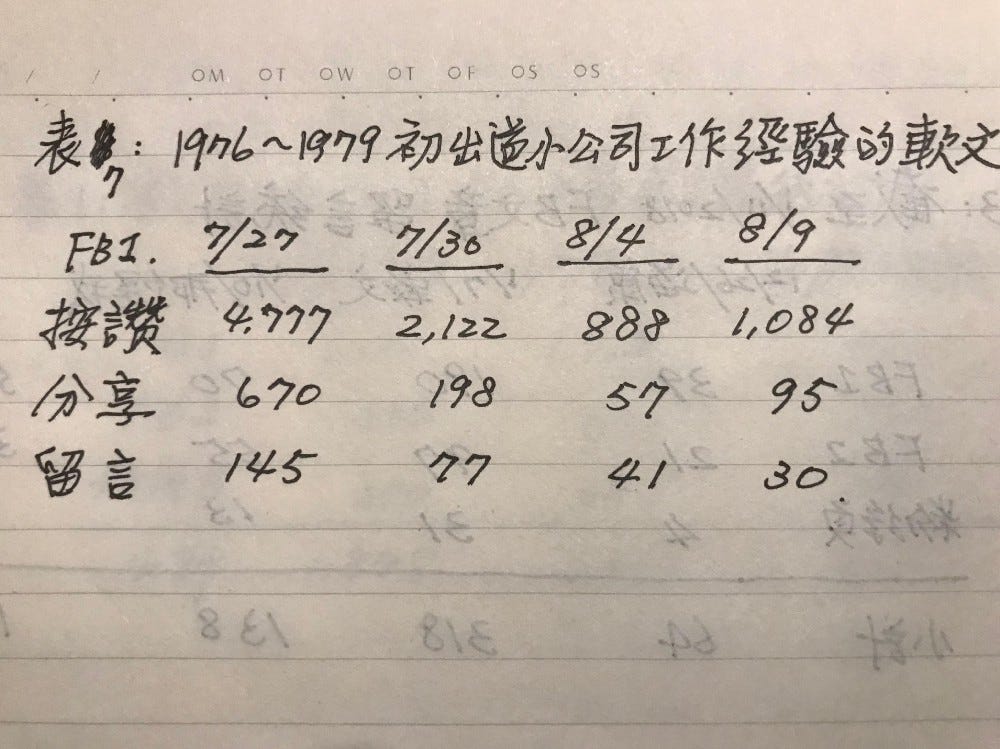 / / OM OT OW OT OF OS OS
表7：1976～1979初出道小公司工作經驗的軟文
FB1. 7/27 7/30 8/4 8/9
按讚 4,777 2,122 888 1,084
分享 670 198 57 95
留言 145 77 41 30